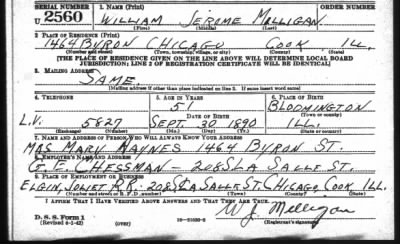 SERIAL NUMBER 1. NAME (Print) ORDER NUMBER
U 2560 WILLIAM JEROME MELLIGAN
(First) (Middle) (Last)
2. PLACE OF RESIDENCE (Print)
1464 BYRON CHICAGO COOK ILL.
(Number and street) (Town, township, village, or city) (County) (State)
[THE PLACE OF RESIDENCE GIVEN ON THE LINE ABOVE WILL DETERMINE LOCAL BOARD
JURISDICTION; LINE 2 OF REGISTRATION CERTIFICATE WILL BE IDENTICAL]
3. MAILING ADDRESS
SAME.
[Mailing address if other than place indicated on line 2. If same insert word same]
4. TELEPHONE 5. AGE IN YEARS 6. PLACE OF BIRTH
51 BLOOMINGTON
DATE OF BIRTH (Town or county)
L.V. 5827 SEPT. 30 1890 ILL.
(Exchange) (Number) (Mo.) (Day) (Yr.) (State or country)
7. NAME AND ADDRESS OF PERSON WHO WILL ALWAYS KNOW YOUR ADDRESS
MRS MARY HAYNES 1464 BYRON ST.
8. EMPLOYER'S NAME AND ADDRESS
G. E. CHESSMAN - 208 S LA SALLE ST.
9. PLACE OF EMPLOYMENT OR BUSINESS
ELGIN, JOLIET R.R. 208 S LA SALLE ST. CHICAGO, COOK ILL.
(Number and street or R. F. D. number) (Town) (County) (State)
I AFFIRM THAT I HAVE VERIFIED ABOVE ANSWERS AND THAT THEY ARE TRUE.
D. S. S. Form 1 W J Melligan
(Revised 4-1-42) (over) (Registrant's signature)